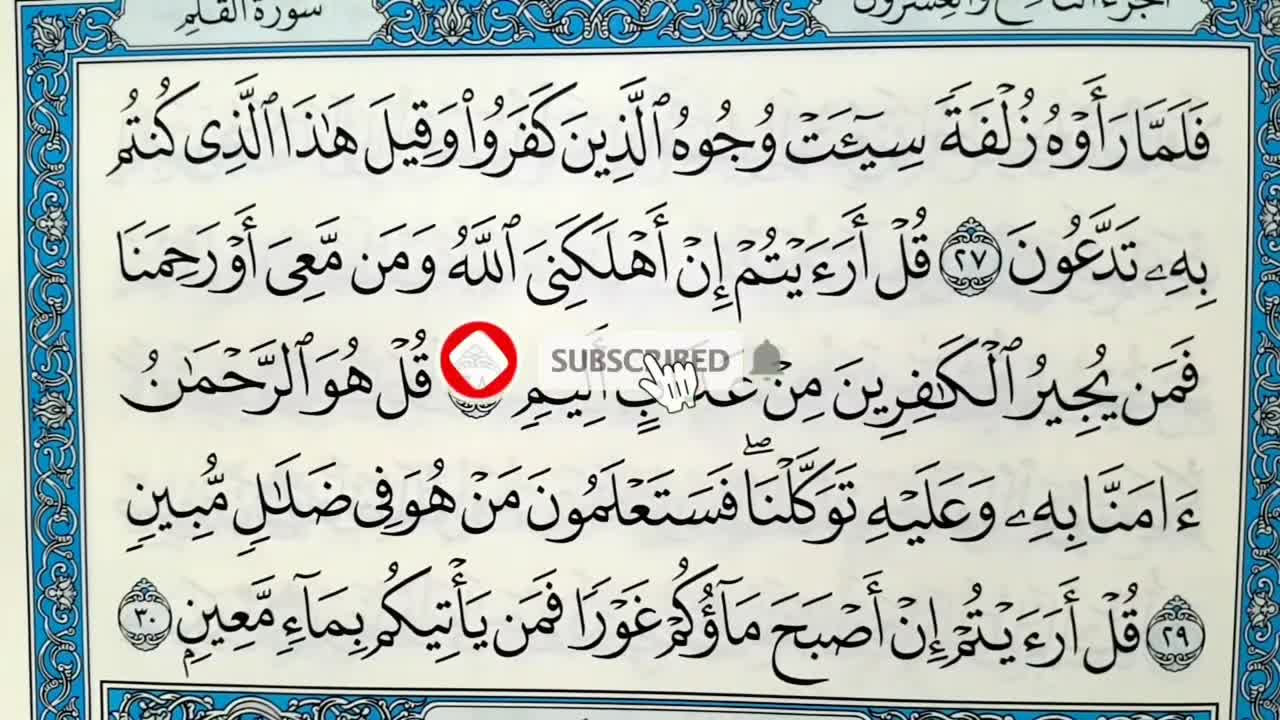 سورة القلم الجزء التاسع والعشرون
فَلَمَّا رَأَوْهُ زُلْفَةً سِيٓـَٔتْ وُجُوهُ ٱلَّذِينَ كَفَرُواْ وَقِيلَ هَٰذَا ٱلَّذِى كُنتُم
بِهِۦ تَدَّعُونَ ٢٧ قُلْ أَرَءَيْتُمْ إِنْ أَهْلَكَنِىَ ٱللَّهُ وَمَن مَّعِىَ أَوْ رَحِمَنَا
فَمَن يُجِيرُ ٱلْكَٰفِرِينَ مِنْ عَذَابٍ أَلِيمٍ قُلْ هُوَ ٱلرَّحْمَٰنُ
SUBSCRIBED
ءَامَنَّا بِهِۦ وَعَلَيْهِ تَوَكَّلْنَا ۖ فَسَتَعْلَمُونَ مَنْ هُوَ فِى ضَلَٰلٍ مُّبِينٍ
٢٩ قُلْ أَرَءَيْتُمْ إِنْ أَصْبَحَ مَآؤُكُمْ غَوْرًا فَمَن يَأْتِيكُم بِمَآءٍ مَّعِينٍ ٣٠